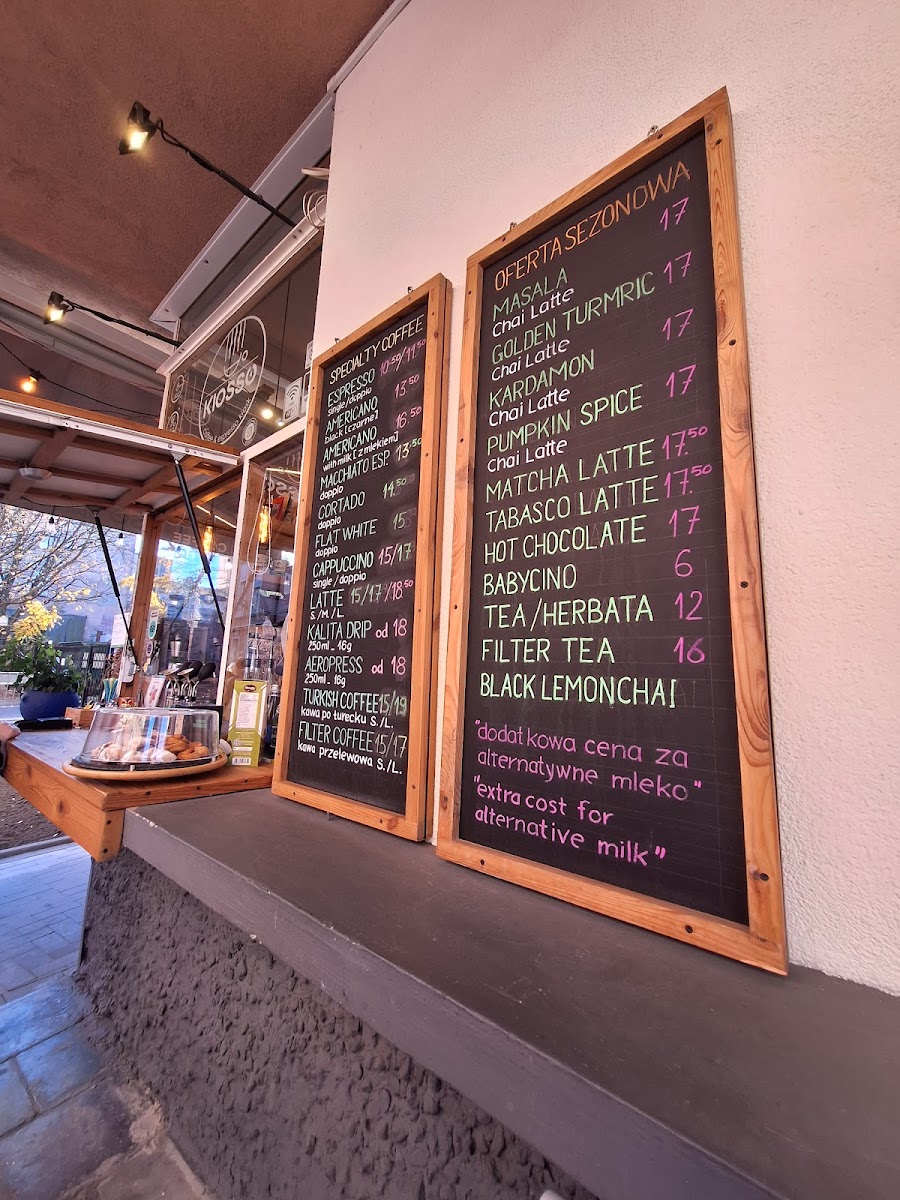 KIOSSO
SPECIALTY COFFEE
ESPRESSO 10.50/11.50
single/doppio
AMERICANO 13.50
black [czarne]
AMERICANO 16.50
with milk [z mlekiem]
MACCHIATO ESP. 13.50
doppio
CORTADO 14.50
doppio
FLAT WHITE 15
doppio
CAPPUCCINO 15/17
single/doppio
LATTE 15/17/18.50
S./M./L.
KALITA DRIP od 18
250ml - 16g
AEROPRESS od 18
250ml - 16g
TURKISH COFFEE 15/19
kawa po turecku S./L.
FILTER COFFEE 15/17
kawa przelewowa S./L.
OFERTA SEZONOWA
MASALA 17
Chai Latte
GOLDEN TURMRIC 17
Chai Latte
KARDAMON 17
Chai Latte
PUMPKIN SPICE 17
Chai Latte
MATCHA LATTE 17.50
TABASCO LATTE 17.50
HOT CHOCOLATE 17
BABYCINO 6
TEA/HERBATA 12
FILTER TEA 16
BLACK LEMONCHAI
"dodatkowa cena za
alternatywne mleko"
"extra cost for
alternative milk"